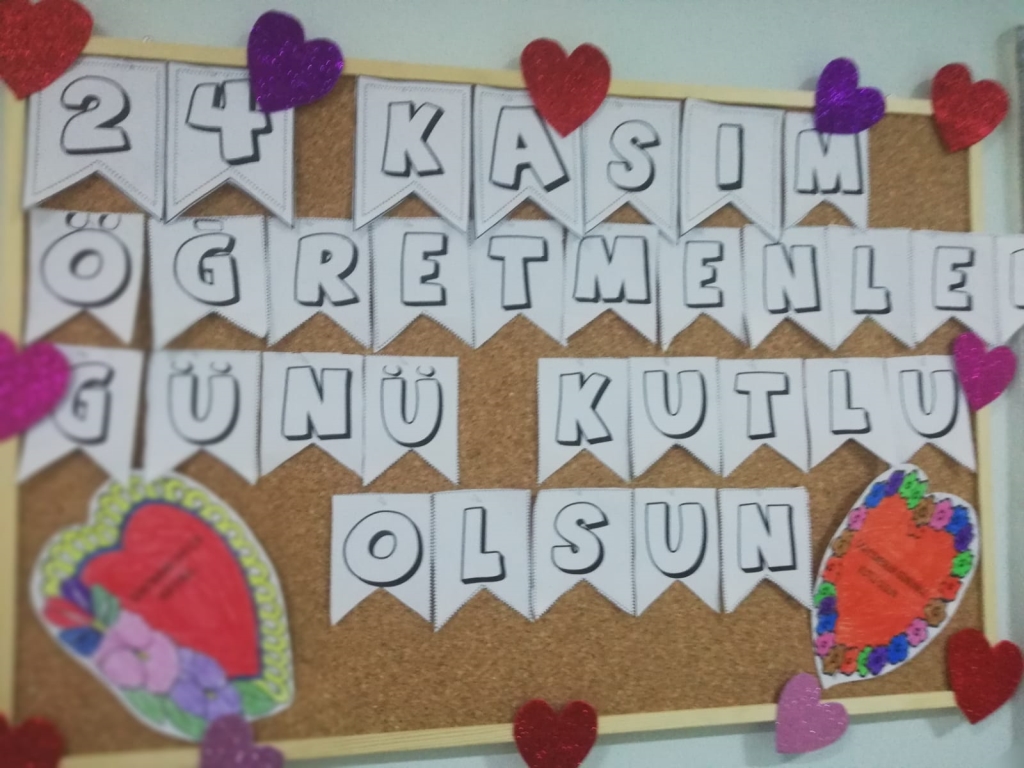 24 KASIM
ÖĞRETMENLER
GÜNÜ KUTLU
OLSUN